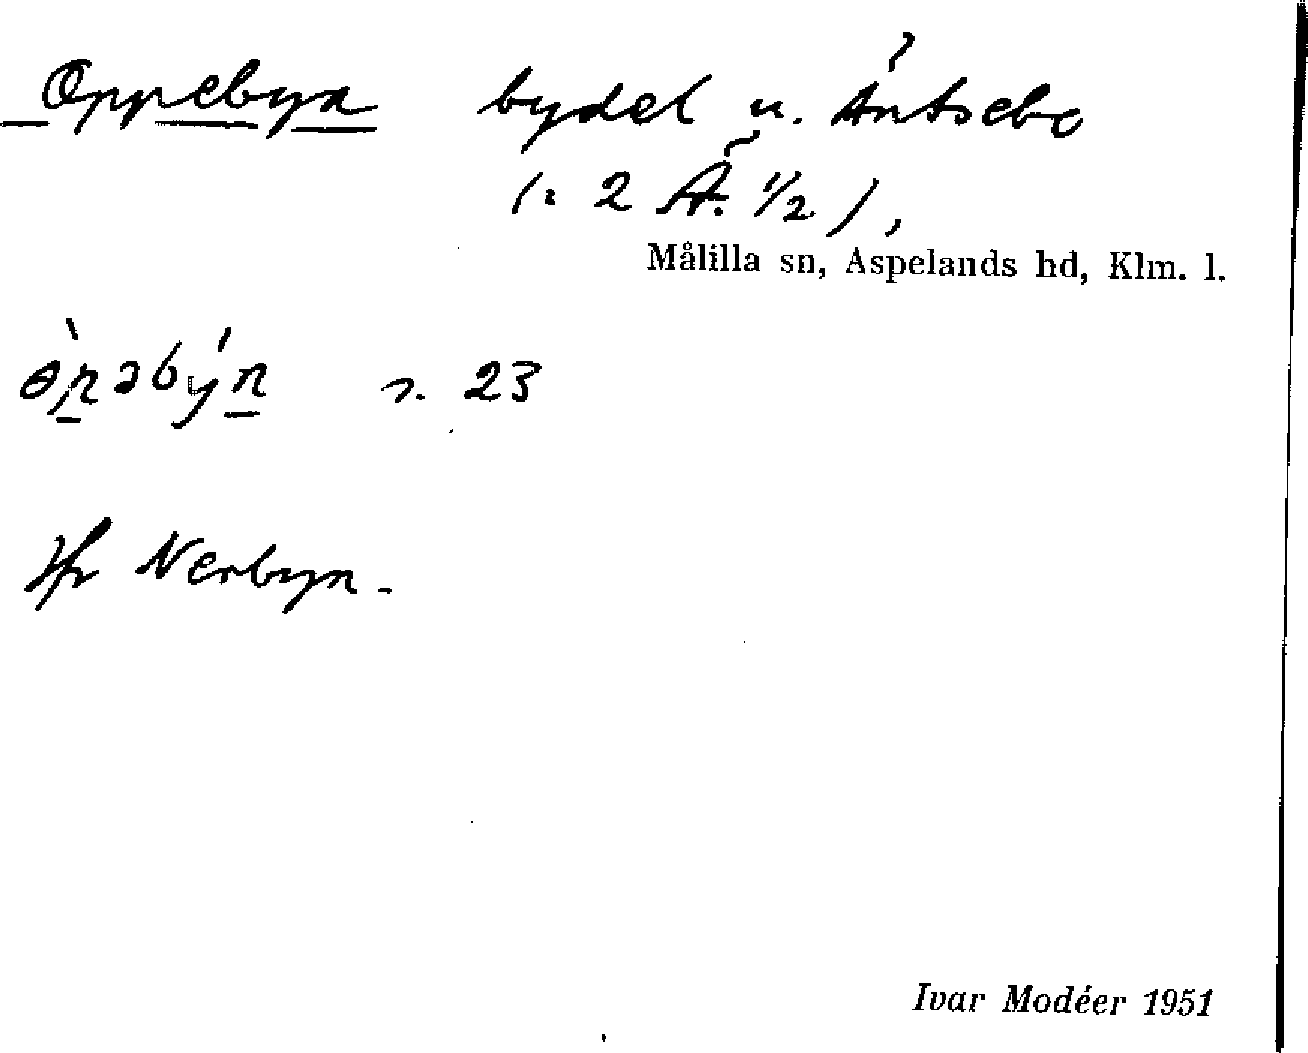 Oppebyn bydel u. Äntsebo
(: 2 Ä. 1/2),
Målilla sn, Aspelands hd, Klm. l.
s. 23
Jfr Nerbyn.
Ivar Modéer 1951